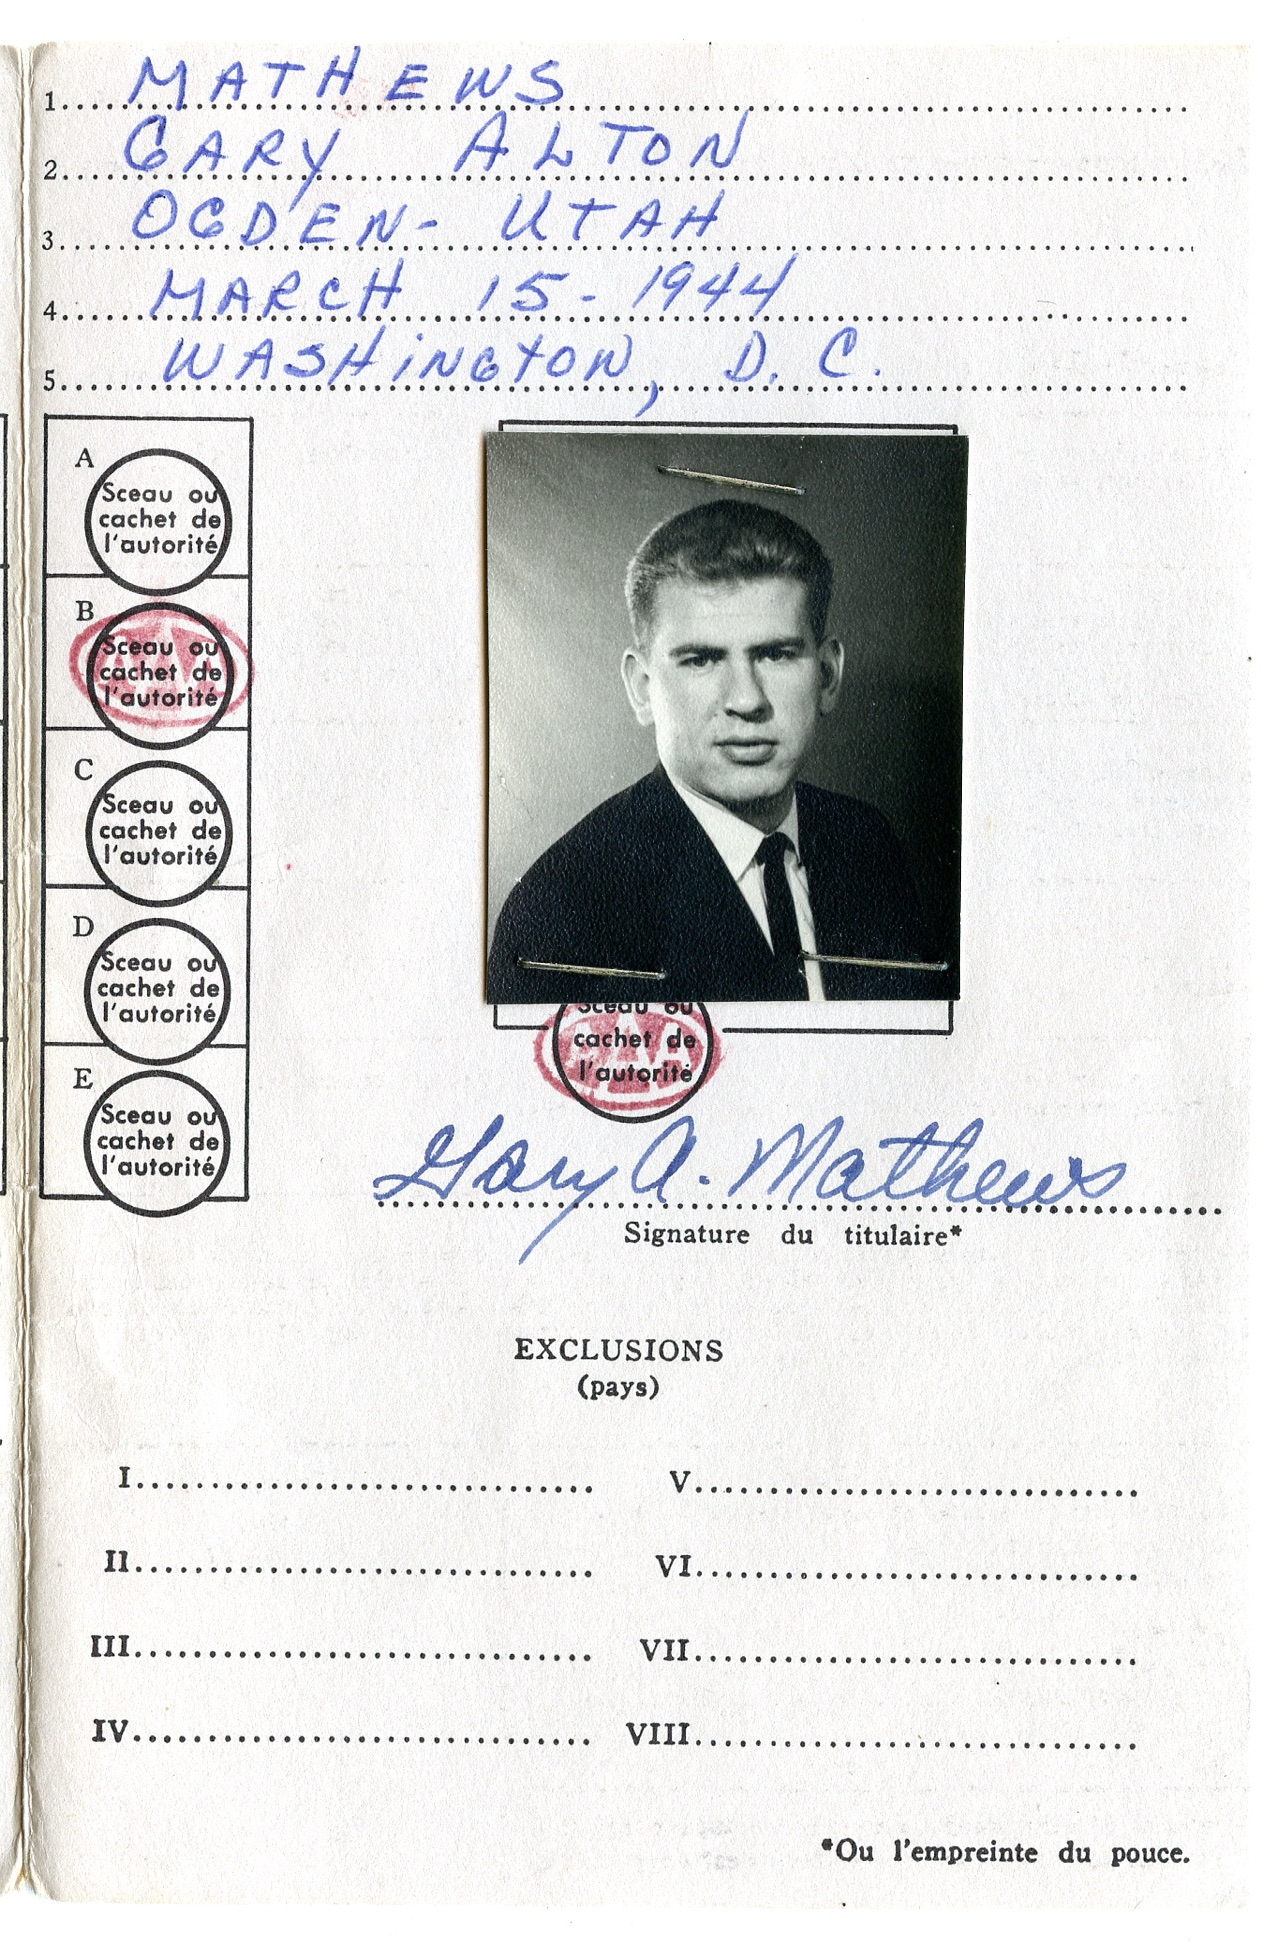 1. MATHEWS
2. GARY ALTON
3. OGDEN - UTAH
4. MARCH 15 - 1944
5. WASHiNGTON, D. C.
A
Sceau ou
cachet de
l'autorité
B
Sceau ou
cachet de
l'autorité
AAA
C
Sceau ou
cachet de
l'autorité
D
Sceau ou
cachet de
l'autorité
E
Sceau ou
cachet de
l'autorité
Sceau ou
cachet de
l'autorité
AAA
Gary A. Mathews
Signature du titulaire*
EXCLUSIONS
(pays)
I V
II VI
III VII
IV VIII
*Ou l'empreinte du pouce.